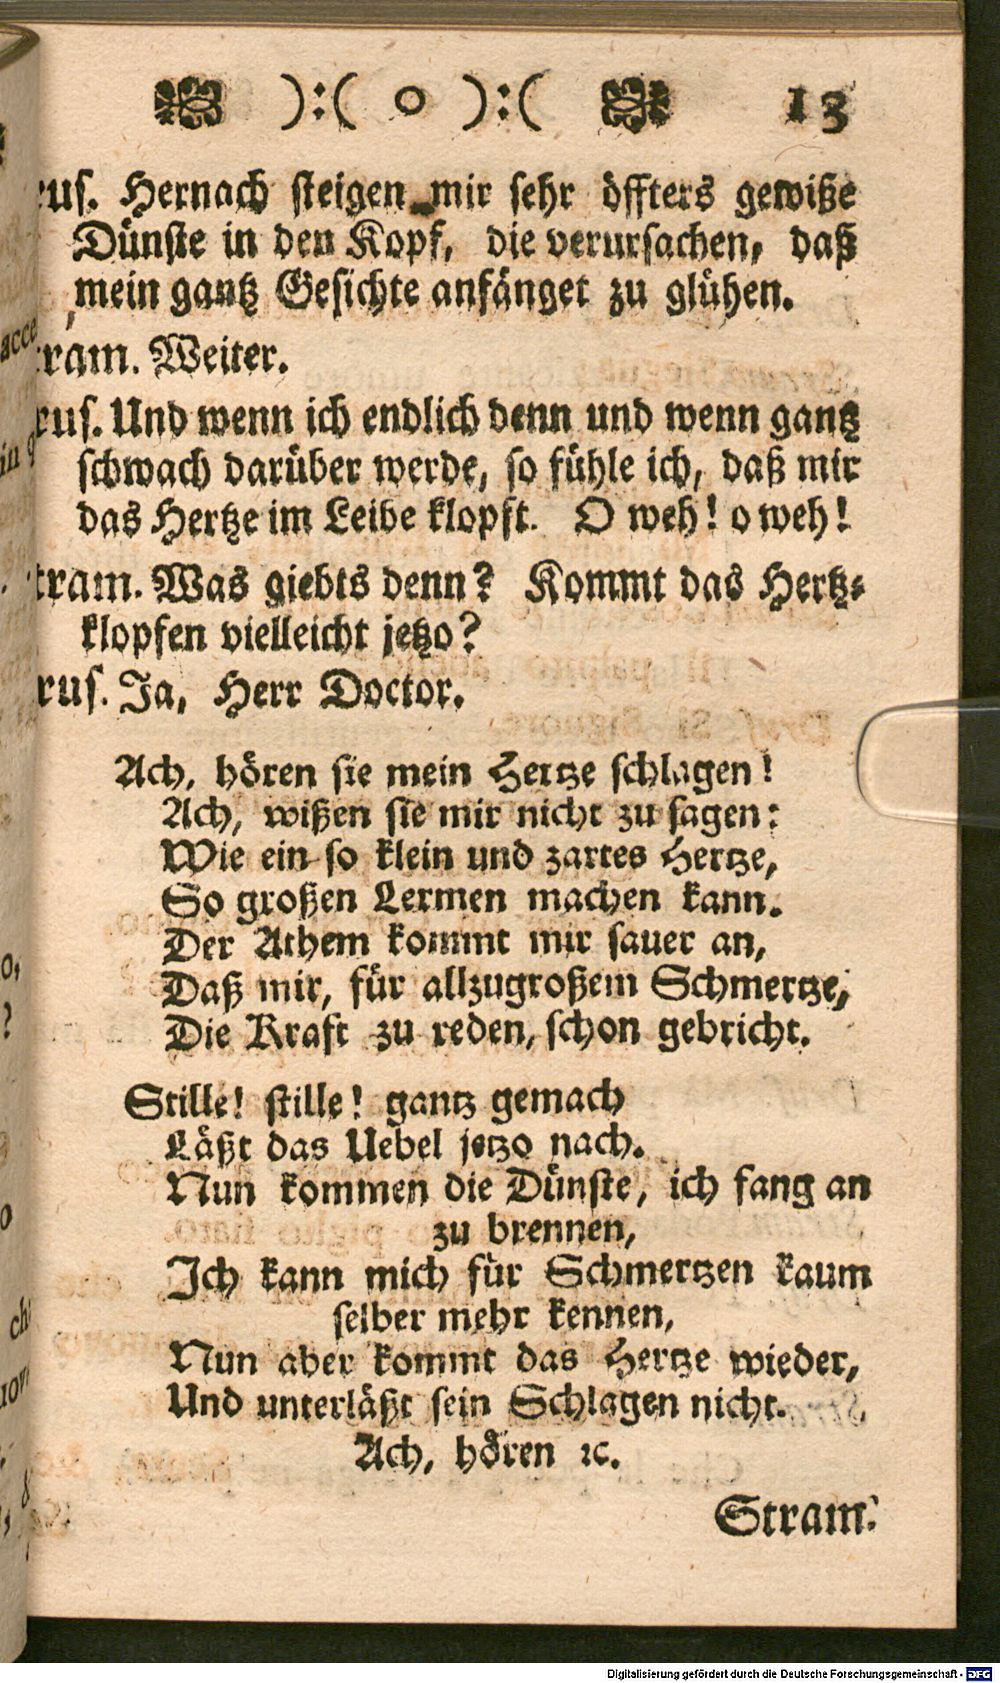 ):( o ):( 13
rus. Hernach steigen mir sehr öffters gewiße
Dünste in den Kopf, die verursachen, daß
mein gantz Gesichte anfänget zu glühen.
ram. Weiter.
rus. Und wenn ich endlich denn und wenn gantz
schwach darüber werde, so fühle ich, daß mir
das Hertze im Leibe klopft. O weh! o weh!
tram. Was giebts denn? Kommt das Hertz-
klopfen vielleicht jetzo?
rus. Ja, Herr Doctor.
Ach, hören sie mein Hertze schlagen!
Ach, wißen sie mir nicht zu sagen:
Wie ein so klein und zartes Hertze,
So großen Lermen machen kann.
Der Athem kommt mir sauer an,
Daß mir, für allzugroßem Schmertze,
Die Kraft zu reden, schon gebricht.
Stille! stille! gantz gemach
Läßt das Uebel jetzo nach.
Nun kommen die Dünste, ich fang an
zu brennen,
Ich kann mich für Schmertzen kaum
selber mehr kennen,
Nun aber kommt das Hertze wieder,
Und unterläßt sein Schlagen nicht.
Ach, hören ꝛc.
Stram.
Digitalisierung gefördert durch die Deutsche Forschungsgemeinschaft - DFG